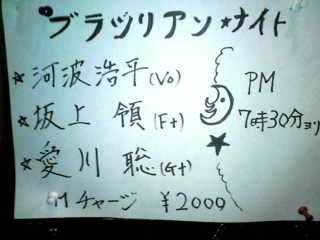 ブラヅリアン★ナイト
★河波浩平(Vo)
★坂上 領(Ft)
★愛川 聡(Gt)
PM
7時30分ヨリ
Mチャージ ￥2000